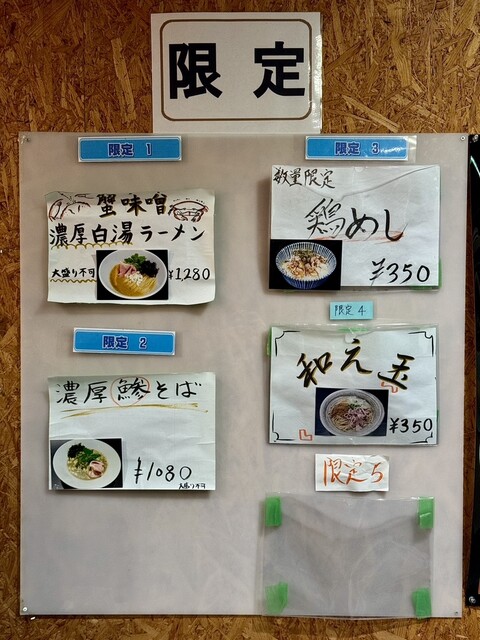 限定
限定 1
蟹味噌
濃厚白湯ラーメン
大盛り不可
¥1,280
限定 2
濃厚鯵そば
¥1080
大盛り不可
限定 3
数量限定
鶏めし
¥350
限定 4
和え玉
¥350
限定5